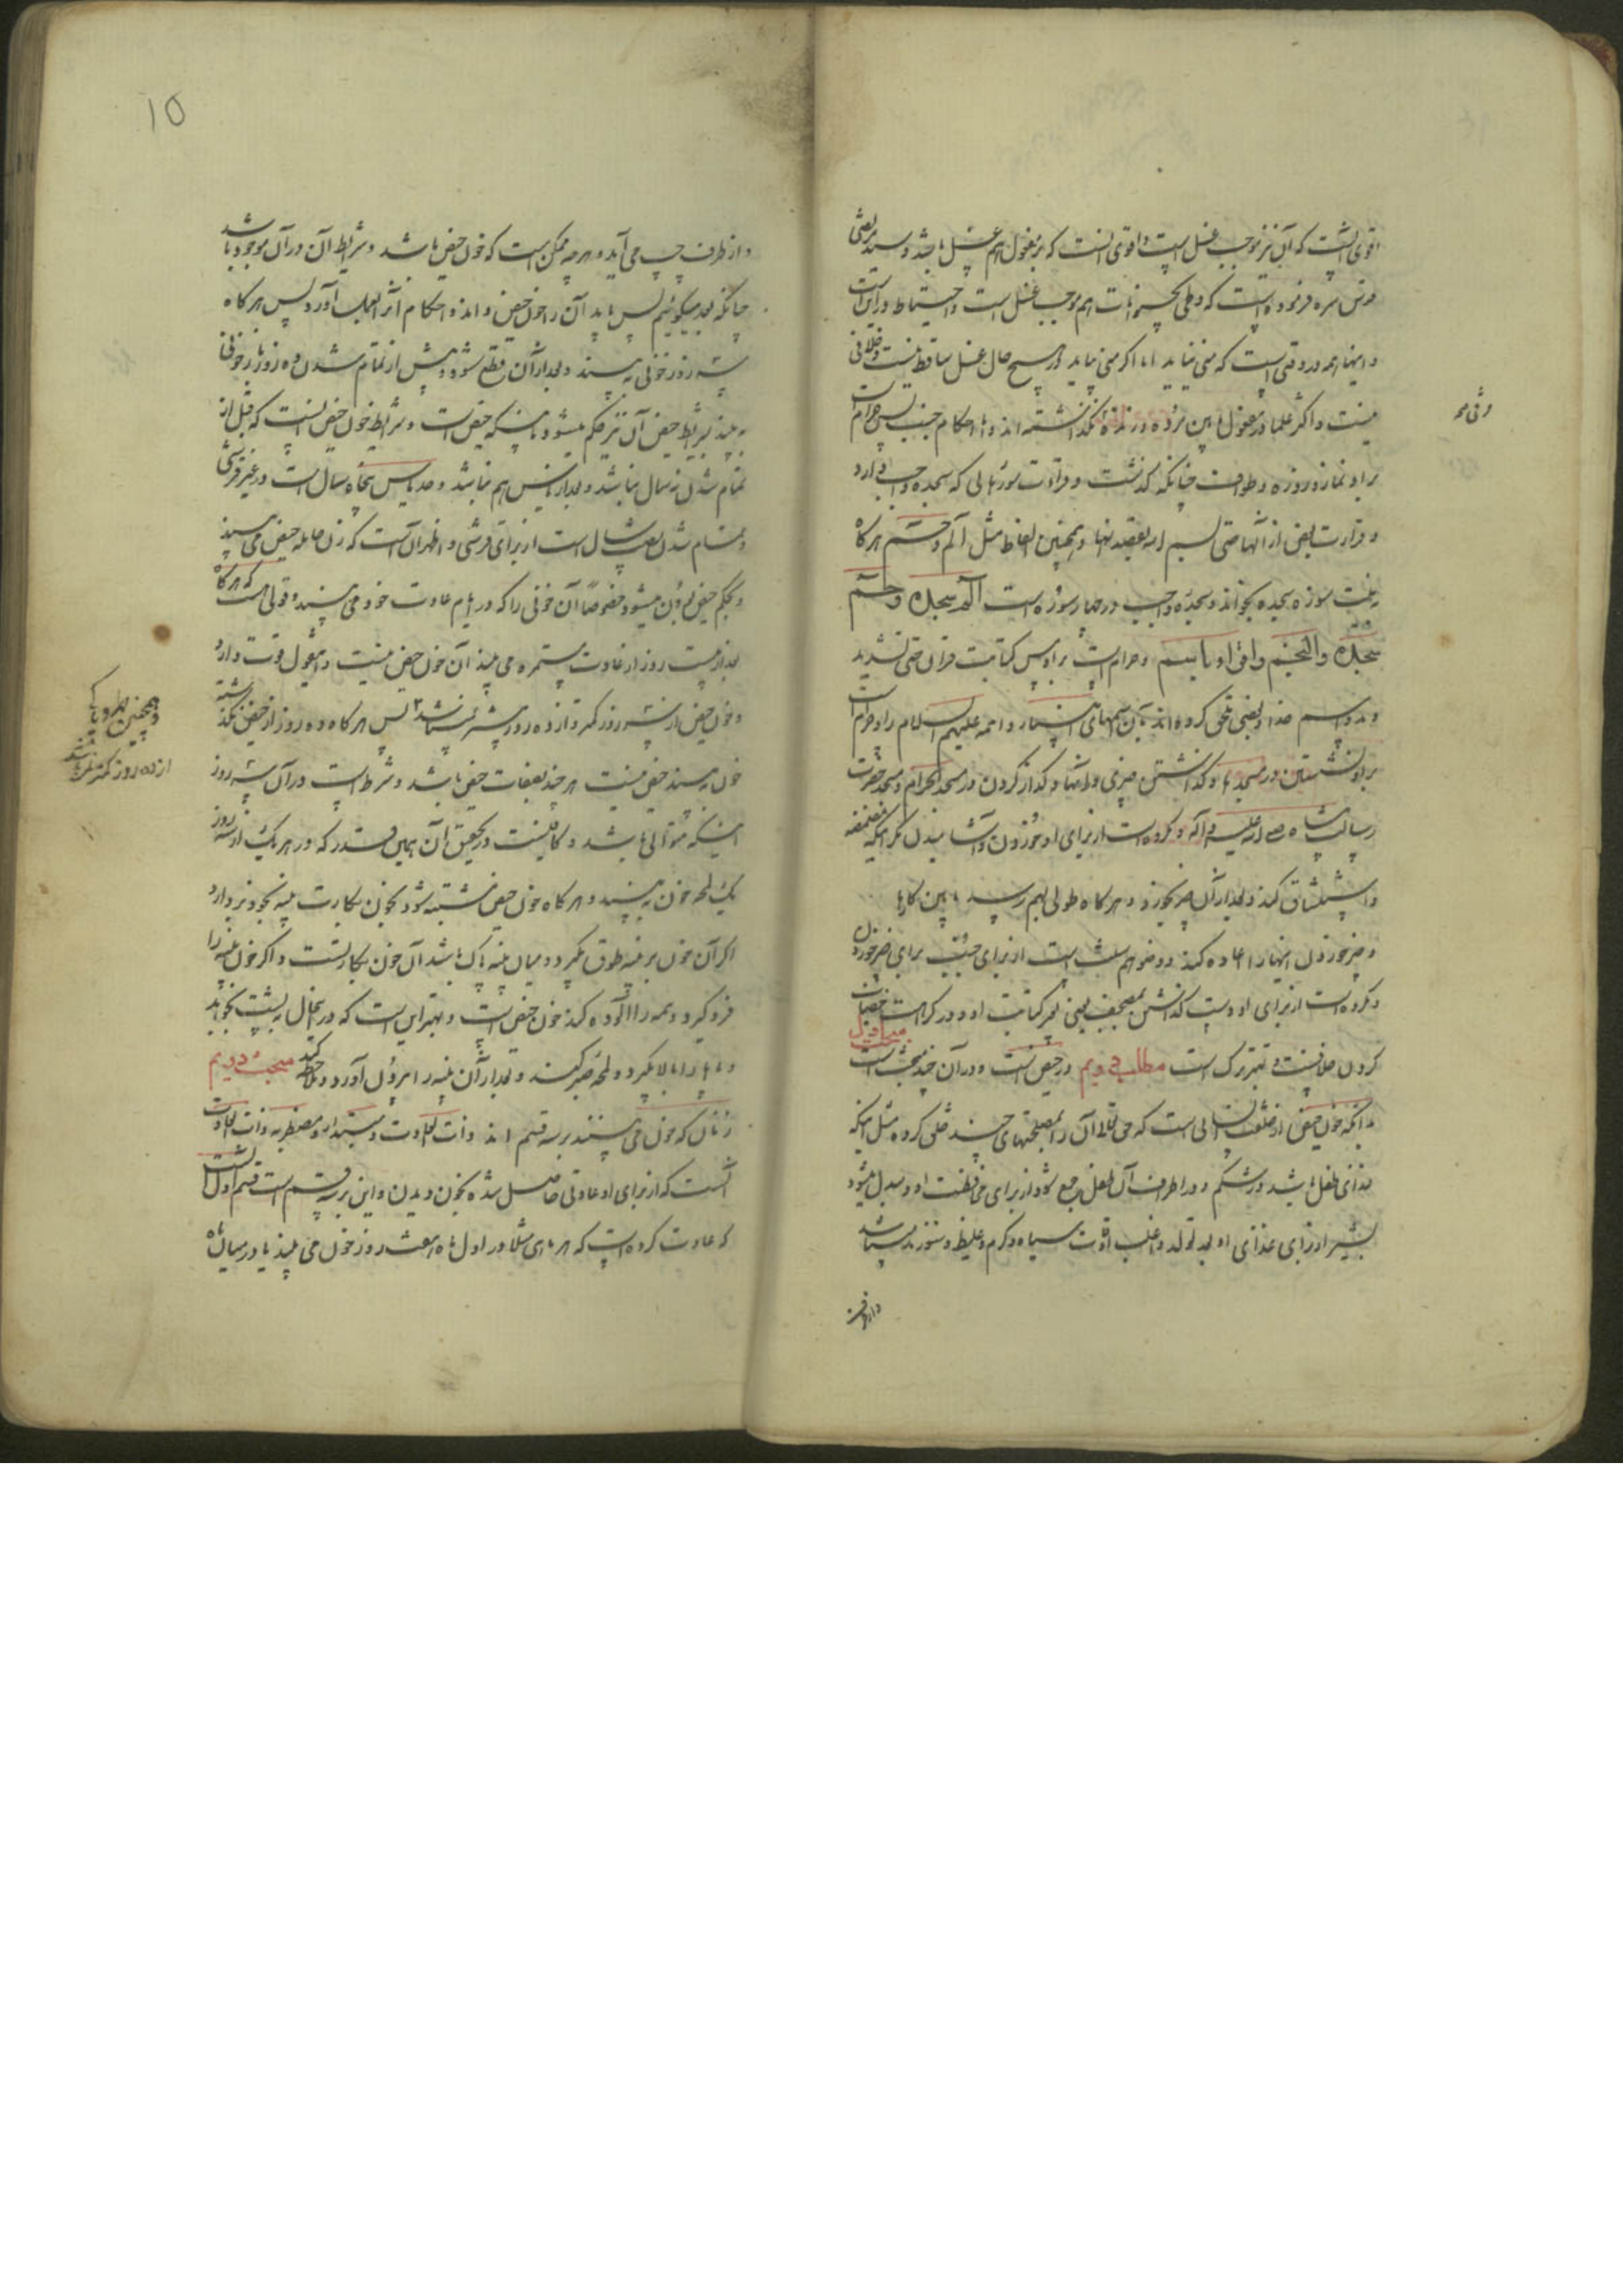 اقوی آنست که آن نیز موجب غسل است و اقوی آنست که بر مفعول هم غسل باشد و سید مرتضی
سره فرموده است که وطی بهیمه هم موجب غسل است و احتیاط در آن است
و اینها همه در وقتی است که منی نیاید اما اگر منی بیاید در هیچ حال غسل ساقط نیست و خلافی
نیست و اکثر علما در مفعول مابین مرده و زنده نگذاشته اند و اما احکام جنب پس حرام است
بر او نماز و روزه و طواف چنانکه گذشت و قراءت سورهائی که سجده واجب دارد
و قراءت بعض از آنها حتی بسم الله بقصد آنها و همچنین الفاظ مثل الم و حم هرگاه
به نیت سوره سجده بخواند و سجده واجب در چهار سوره است الم سجده و حم
سجده والنجم واقرا باسم و حرامست بر او مس کتابت قران حتی تشدید
و مد و اسم خدا و بعضی ملحق کرده اند بآن اسمهای پیغمبران و ائمه علیهم السلام را و حرام است
بر او نشستن در مسجدها و گذاشتن چیزی در آنها و گذار کردن در مسجد الحرام و مسجد حضرت
رسالت پناه صلی الله علیه و آله و مکروه است از برای او خوردن و آشامیدن مگر اینکه مضمضه
و استنشاق کند و بعد از آن چیز بخورد و هرگاه طولی بهم رسد مابین کارها
و چیز خوردن اینها را اعاده کند و وضو هم سنت است از برای جنب برای چیز خوردن
و مکروه است از برای او دست گذاشتن بمصحف یعنی غیر کتابت او و در کراهت خضاب
کردن خلافیست و بهتر ترک است مطلب دویم در حیض است و در آن چند مبحث است مبحث اول
بدانکه خون حیض از خلقت الهی است که حق تعالی آن را بمصلحتهای چند خلق کرده مثل اینکه
غذای طفل باشد در شکم و در اطراف آن طفل جمع شود از برای محافظت او و مبدل میشود
بشیر از برای غذای او بعد تولد و اغلب اوقات سیاه و گرم و غلیظ و سوزنده میباشد
و از طرف
و از طرف چپ می آید و هرچه ممکن است که خون حیض باشد و شرایط آن در آن موجود باشد
چنانکه بعد میگوئیم پس باید آن را خون حیض داند و احکام آنرا بعمل آورد پس هرگاه
سه روز خونی ببیند و بعد از آن قطع شود و پیش از تمام شدن ده روز باز خونی
ببیند بشرایط حیض آن نیز حکم میشود باینکه حیض است و شرایط خون حیض اینست که قبل از
تمام شدن نه سال نباشد و بعد از یاس هم نباشد و حد یاس پنجاه سال است در غیر قرشی
و تمام شدن شصت سال است از برای قرشی و اظهر آن است که زن حامله حیض می بیند
و بحکم حیض بودن میشود خصوصا آن خونی را که در ایام عادت خود می بیند و قولی هست که هرگاه
بعد از بیست روز از عادت مستمره می بیند آن خون حیض نیست و این قول قوت دارد
و خون حیض از سه روز کمتر و از ده روز بیشتر نمیباشد پس هرگاه ده روز از حیض نگذشته
خون ببیند حیض نیست هر چند بصفات حیض باشد و شرط است در آن سه روز
اینکه متوالی باشد و کافیست در تحقیق آن همین قدر که در هر یک از سه روز
یک لحظه خون ببیند و هرگاه خون حیض مشتبه شود بخون بکارت پنبه بخود بردارد
اگر آن خون بر پنبه طوق بگیرد و میان پنبه پاک باشد آن خون بکارتست و اگر خون پنبه را
فرو گیرد و همه را آلوده کند خون حیض است و بهتر این است که در این حال به پشت بخوابد
و پاها را بالا بگیرد و لحظه صبر کند و بعد از آن پنبه را بیرون آورد و ملاحظه کند مبحث دویم
زنان که خون می بینند بر سه قسم اند ذات العادت و مبتدئه و مضطربه ذات العادت
آنست که از برای او عادتی حاصل شده بخون دیدن و این بر سه قسم است قسم اول آنست
که عادت کرده است که هر ماهی مثلا در اول ماه هفت روز خون می بیند یا در میان ماه
و همچنین طهر و پاکی
از ده روز کمتر نمیباشد
10